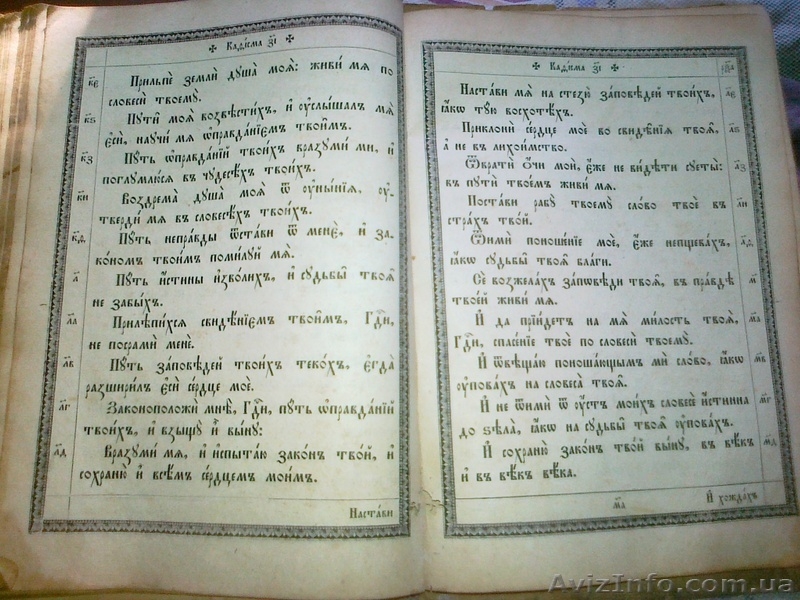 ✠ Каѳі́сма з҃і ✠
к҃е Прильпѐ землѝ дꙋша̀ моѧ̀: живи́ мѧ по
словесѝ твоемꙋ̀.
к҃ѕ Пꙋти̑ моѧ̑ возвѣсти́хъ, и҆ ᲂу҆слы́шалъ мѧ̀
є҆сѝ, наꙋчи́ мѧ ѡ҆правда́нїємъ твои̑мъ.
к҃з Пꙋ́ть ѡ҆правда́нїй твои́хъ вразꙋми́ ми, и҆
поглꙋмлю́сѧ въ чꙋдесѣ́хъ твои́хъ.
к҃и Воздрема̀ дꙋша̀ моѧ̀ ѿ ᲂу҆ны́нїѧ, ᲂу҆-
тверди́ мѧ въ словесѣ́хъ твои́хъ.
к҃ѳ Пꙋ́ть непра́вды ѿста́ви ѿ менє̀, и҆ за-
ко́номъ твои́мъ поми́лꙋй мѧ̀.
л҃ Пꙋ́ть и҆́стины и҆зво́лихъ, и҆ сꙋдьбы̑ твоѧ̑
не забы́хъ.
л҃а Прилѣпи́хсѧ свидѣ́нїємъ твои̑мъ, гдⷭ҇и,
не посрамѝ менѐ.
л҃в Пꙋ́ть за́повѣдей твои́хъ теко́хъ, є҆гда̀
разшири́лъ є҆сѝ се́рдце моѐ.
л҃г Законоположи́ мнѣ, гдⷭ҇и, пꙋ́ть ѡ҆правда́нїй
твои́хъ, и҆ взыщꙋ̀ и҆̀ вы́нꙋ:
л҃д Вразꙋми́ мѧ, и҆ и҆спыта́ю зако́нъ тво́й, и҆
сохраню̀ и҆̀ всѣ́мъ се́рдцемъ мои́мъ.
Наста́ви
✠ Каѳі́сма з҃і ✠
л҃е Наста́ви мѧ̀ на стезю̀ за́повѣдей твои́хъ,
ꙗ҆́кѡ тꙋ́ю восхотѣ́хъ.
л҃ѕ Приклонѝ се́рдце моѐ во свидѣ̑нїѧ твоѧ̑,
а҆ не въ лихои́мство.
л҃з Ѿвратѝ ѻ҆́чи моѝ, є҆́же не ви́дѣти сꙋеты̀:
въ пꙋтѝ твое́мъ живи́ мѧ.
л҃и Поста́ви рабꙋ̀ твоемꙋ̀ сло́во твоѐ въ
стра́хъ тво́й.
л҃ѳ Ѿимѝ поноше́нїе моѐ, є҆́же непщева́хъ,
ꙗ҆́кѡ сꙋдьбы̑ твоѧ̑ бла̑ги.
м҃ Сѐ возжела́хъ за́пѡвѣди твоѧ̑, въ пра́вдѣ
твое́й живи́ мѧ.
м҃а И҆ да прїи́детъ на мѧ̀ ми́лость твоѧ̀,
гдⷭ҇и, спасе́нїе твоѐ по словесѝ твоемꙋ̀.
м҃в И҆ ѿвѣща́ю поноша́ющымъ мѝ сло́во, ꙗ҆́кѡ
ᲂу҆пова́хъ на словеса̀ твоѧ̑.
м҃г И҆ не ѿимѝ ѿ ᲂу҆́стъ мои́хъ словесѐ и҆́стинна
до ѕѣла̀, ꙗ҆́кѡ на сꙋдьбы̑ твоѧ̑ ᲂу҆пова́хъ.
м҃д И҆ сохраню̀ зако́нъ тво́й вы́нꙋ, въ вѣ́къ
и҆ въ вѣ́къ вѣ́ка.
м҃а И҆ хожда́хъ
AvizInfo.com.ua